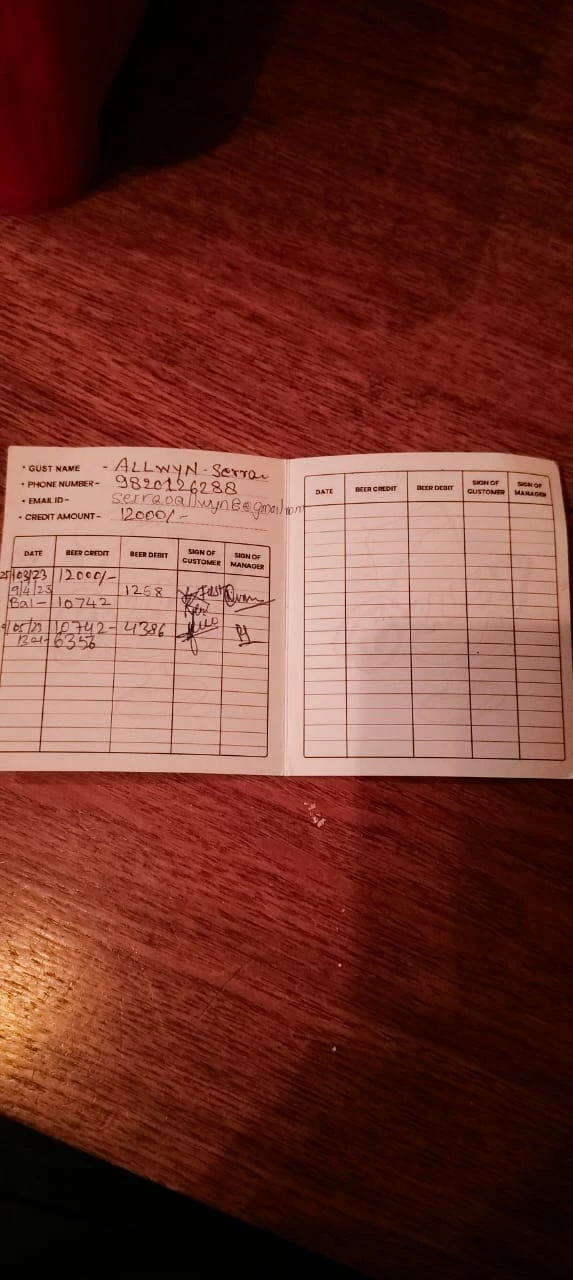 • GUST NAME - ALLWYN - Serrao
• PHONE NUMBER - 9820126288
• EMAIL ID -
• CREDIT AMOUNT - 12000/-
DATE BEER CREDIT BEER DEBIT SIGN OF CUSTOMER SIGN OF MANAGER
25/03/23 12000/-
9/4/23 1258
Bal - 10742
/05/23 10742 - 4386
Bal - 6356
DATE BEER CREDIT BEER DEBIT SIGN OF CUSTOMER SIGN OF MANAGER